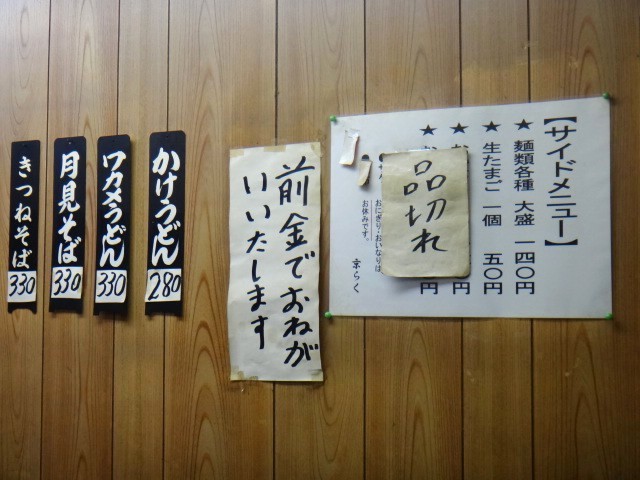 【サイドメニュー】
★麺類各種 大盛 一四〇円
★生たまご 一個 五〇円
★お
円
★
円
品切れ
おにぎり・おいなりは
お休みです。
京らく
前金でおねが
いいたします
かけうどん
280
ワカメうどん
330
月見そば
330
きつねそば
330